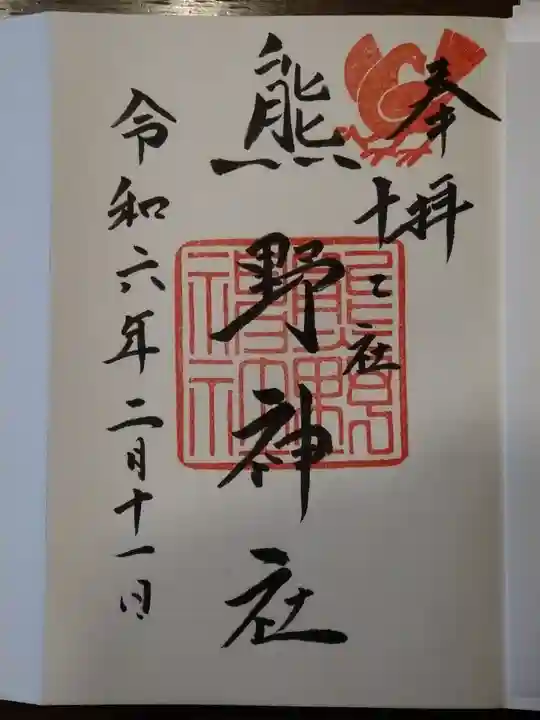 奉拝
十二社
熊野神社
令和六年二月十一日